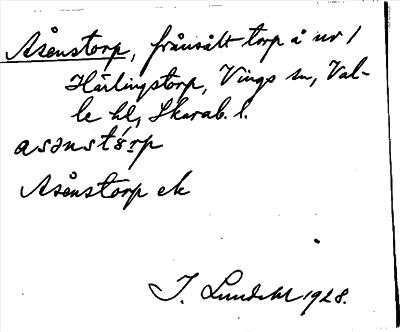 Åsenstorp, frånsålt torp å nr 1
Härlingstorp, Vings sn, Val-
le hd, Skarab. l.
asənstörp
Åsenstorp ek
J. Lundahl 1928.